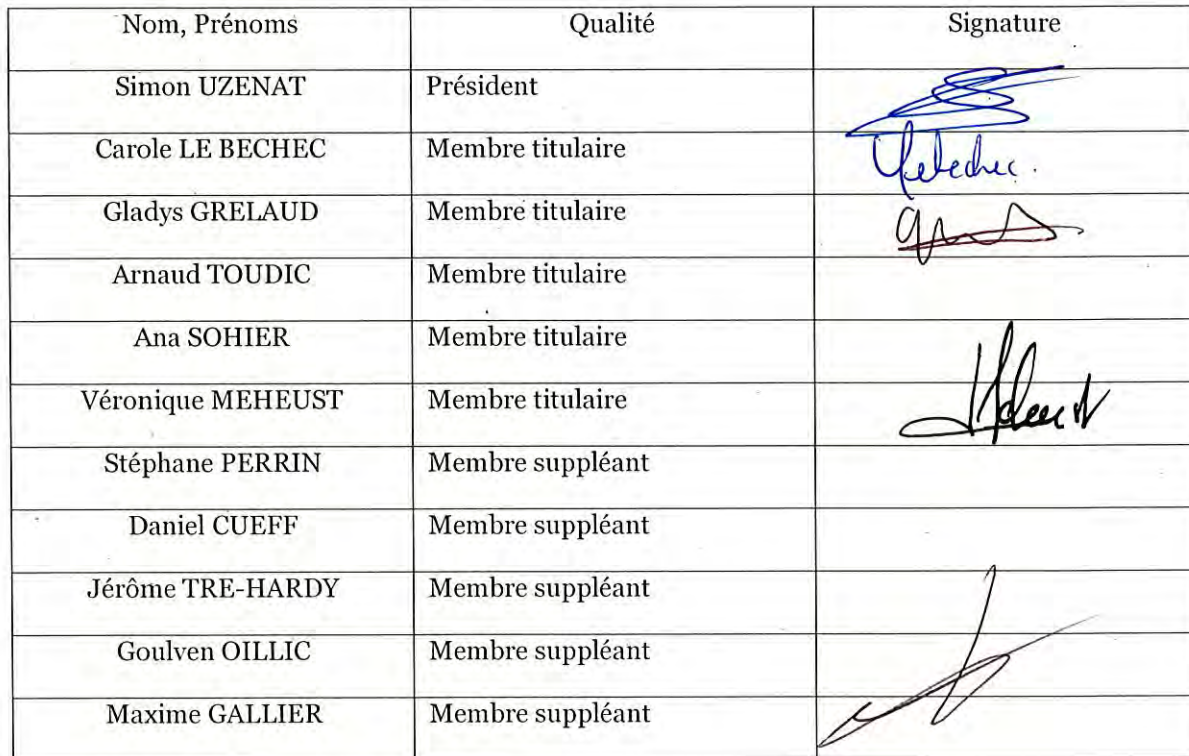 Nom, Prénoms Qualité Signature
Simon UZENAT Président
Carole LE BECHEC Membre titulaire Lebechec
Gladys GRELAUD Membre titulaire
Arnaud TOUDIC Membre titulaire
Ana SOHIER Membre titulaire
Véronique MEHEUST Membre titulaire
Stéphane PERRIN Membre suppléant
Daniel CUEFF Membre suppléant
Jérôme TRE-HARDY Membre suppléant
Goulven OILLIC Membre suppléant
Maxime GALLIER Membre suppléant